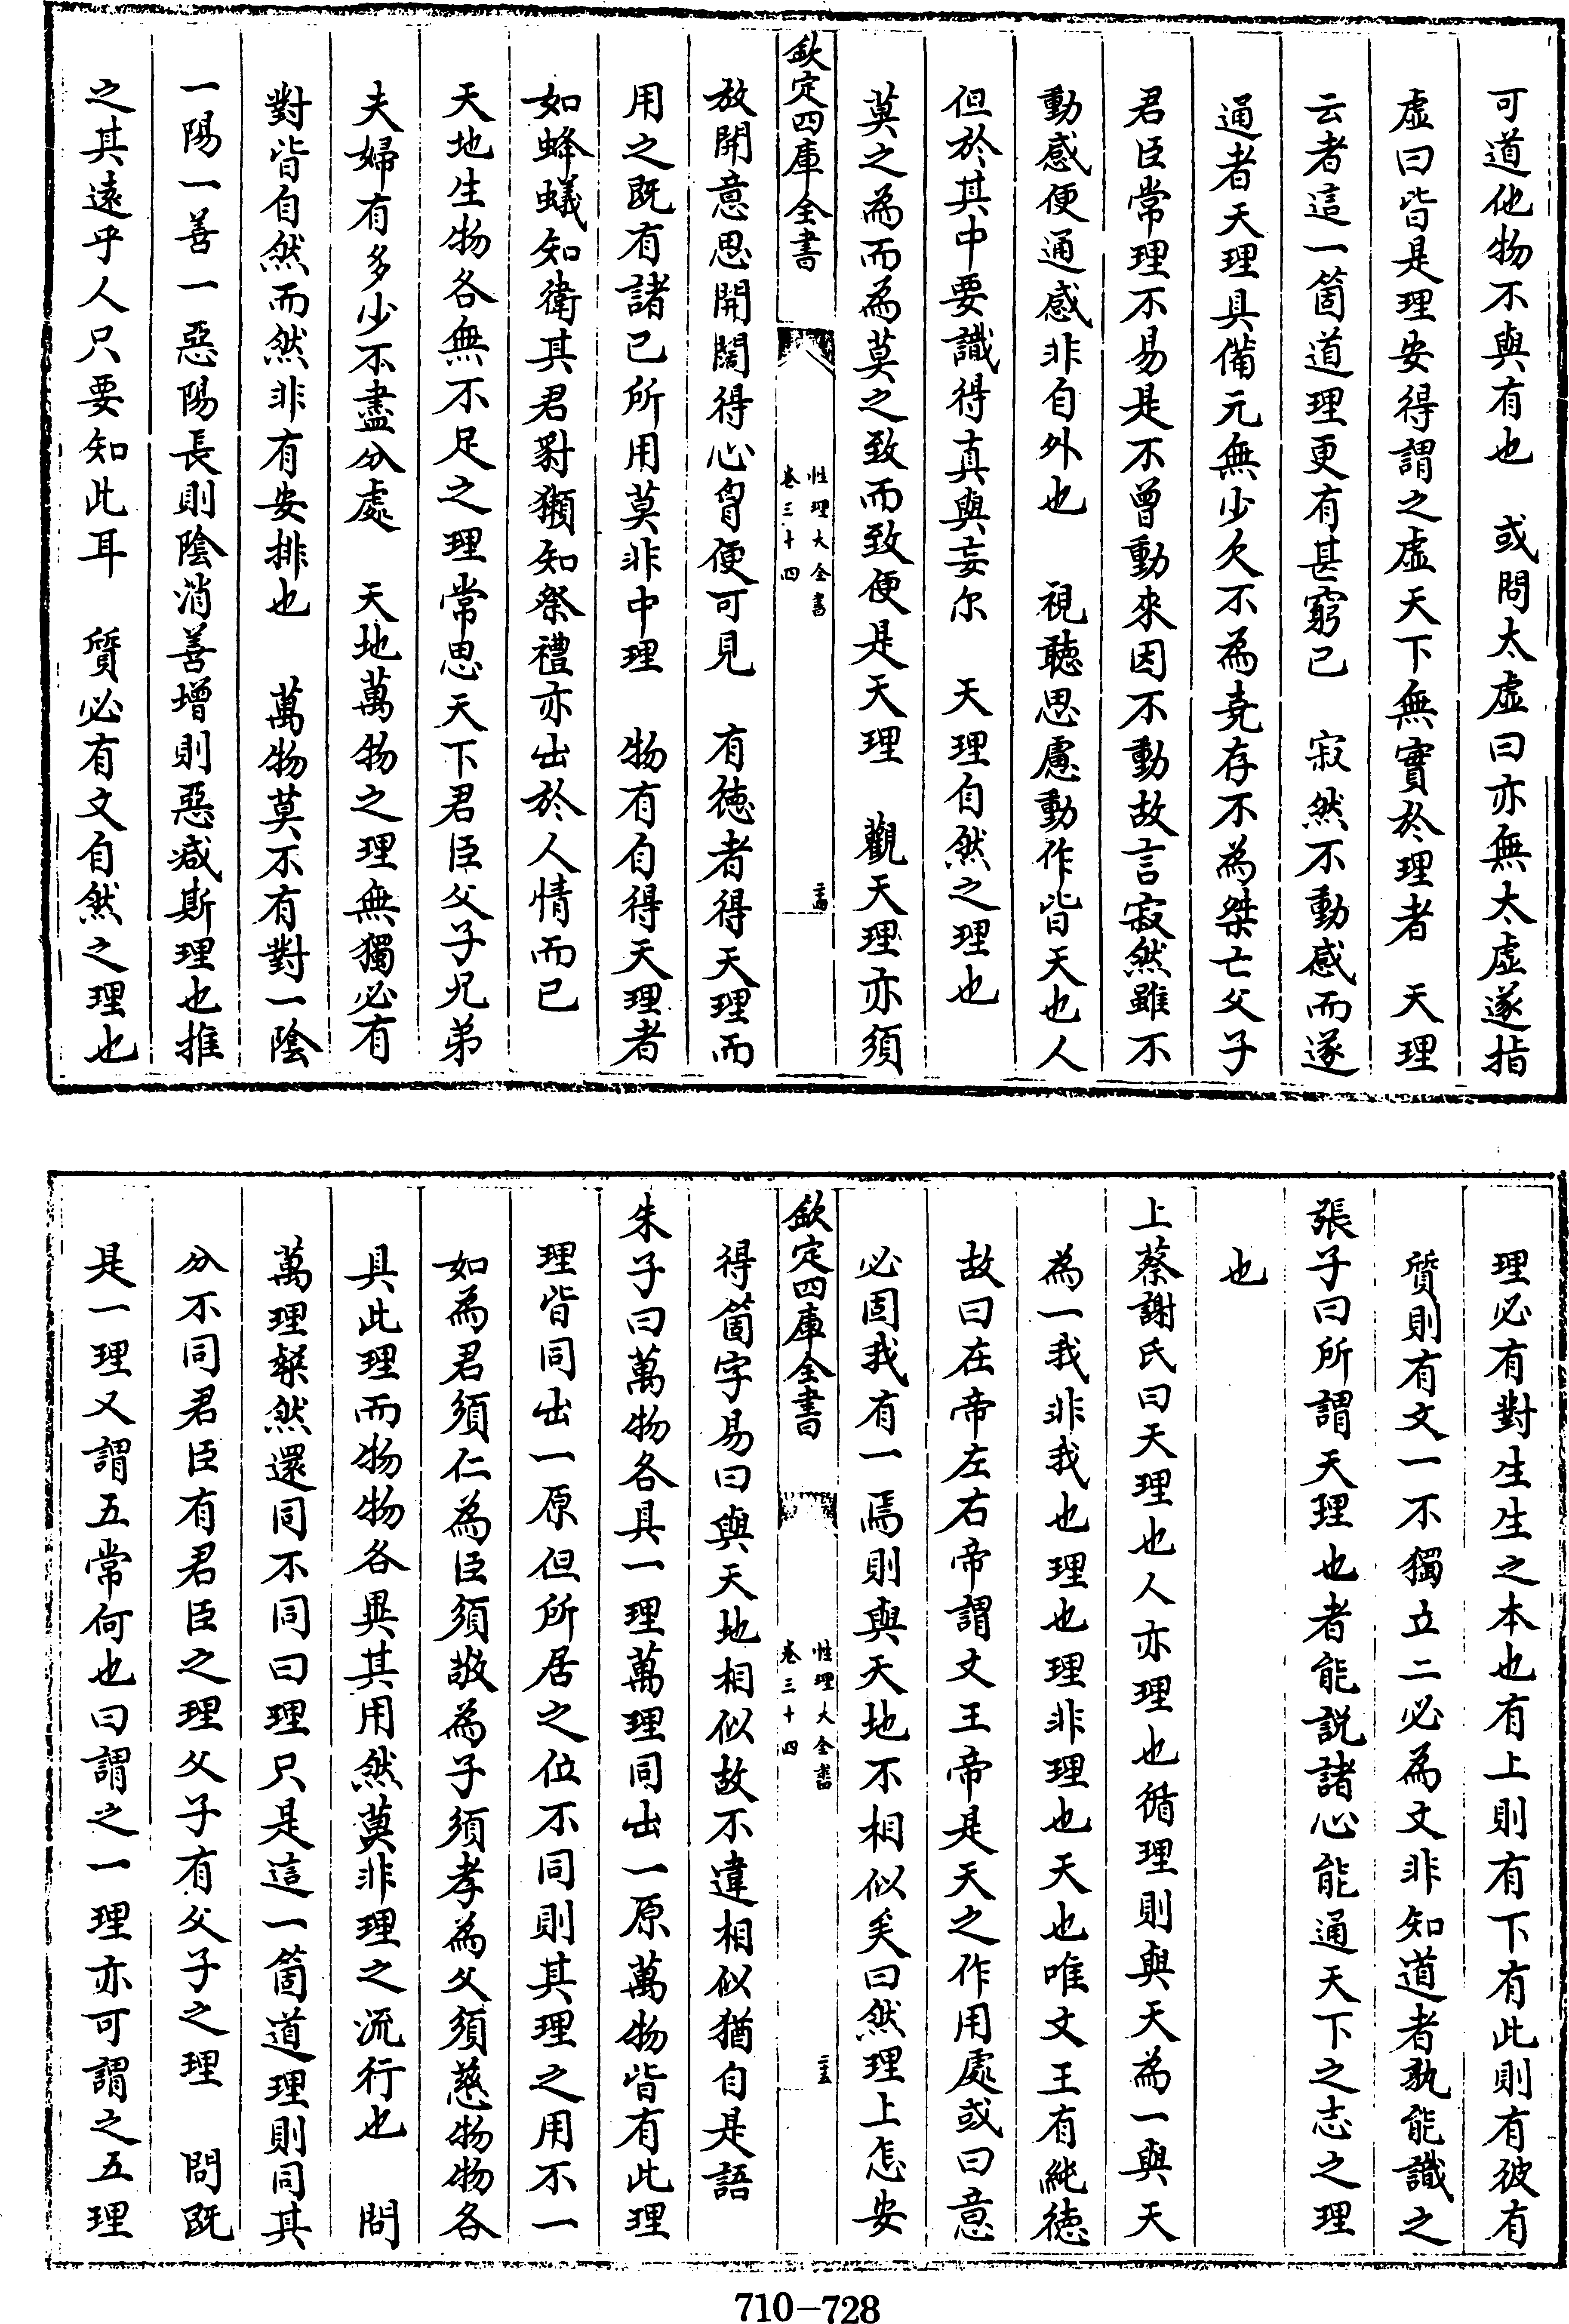 可道他物不與有也　或問太虛曰亦無太虛遂指
虛曰皆是理安得謂之虛天下無實於理者　天理
云者這一箇道理更有甚窮已　寂然不動感而遂
通者天理具備元無少欠不為堯存不為桀亡父子
君臣常理不易是不曾動來因不動故言寂然雖不
動感便通感非自外也　視聽思慮動作皆天也人
但於其中要識得真與妄尔　天理自然之理也
莫之為而為莫之致而致便是天理　觀天理亦須
欽定四庫全書
性理大全書
卷三十四
放開意思開闊得心胷便可見　有徳者得天理而
用之既有諸己所用莫非中理　物有自得天理者
如蜂蟻知衛其君豺獺知祭禮亦出於人情而已
天地生物各無不足之理常思天下君臣父子兄弟
夫婦有多少不盡分處　天地萬物之理無獨必有
對皆自然而然非有安排也　萬物莫不有對一陰
一陽一善一惡陽長則陰消善增則惡減斯理也推
之其遠乎人只要知此耳　質必有文自然之理也
理必有對生生之本也有上則有下有此則有彼有
質則有文一不獨立二必為文非知道者孰能識之
張子曰所謂天理也者能説諸心能通天下之志之理
也
上蔡謝氏曰天理也人亦理也循理則與天為一與天
為一我非我也理也理非理也天也唯文王有純徳
故曰在帝左右帝謂文王帝是天之作用處或曰意
必固我有一焉則與天地不相似矣曰然理上怎安
欽定四庫全書
性理大全書
卷三十四
得箇字易曰與天地相似故不違相似猶自是語
朱子曰萬物各具一理萬理同出一原萬物皆有此理
理皆同出一原但所居之位不同則其理之用不一
如為君須仁為臣須敬為子須孝為父須慈物物各
具此理而物物各異其用然莫非理之流行也　問
萬理粲然還同不同曰理只是這一箇道理則同其
分不同君臣有君臣之理父子有父子之理　問既
是一理又謂五常何也曰謂之一理亦可謂之五理
710-728